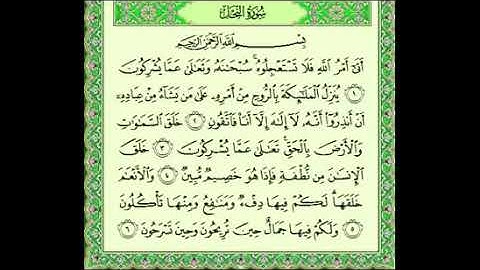 سُورَةُ النَّحْلِ
بِسْمِ اللَّهِ الرَّحْمَٰنِ الرَّحِيمِ
أَتَىٰ أَمْرُ اللَّهِ فَلَا تَسْتَعْجِلُوهُ سُبْحَانَهُ وَتَعَالَىٰ عَمَّا يُشْرِكُونَ
١ يُنَزِّلُ الْمَلَائِكَةَ بِالرُّوحِ مِنْ أَمْرِهِ عَلَىٰ مَن يَشَاءُ مِنْ عِبَادِهِ
أَنْ أَنذِرُوا أَنَّهُ لَا إِلَٰهَ إِلَّا أَنَا فَاتَّقُونِ ٢ خَلَقَ السَّمَاوَاتِ
وَالْأَرْضَ بِالْحَقِّ تَعَالَىٰ عَمَّا يُشْرِكُونَ ٣ خَلَقَ
الْإِنسَانَ مِن نُّطْفَةٍ فَإِذَا هُوَ خَصِيمٌ مُّبِينٌ ٤ وَالْأَنْعَامَ
خَلَقَهَا لَكُمْ فِيهَا دِفْءٌ وَمَنَافِعُ وَمِنْهَا تَأْكُلُونَ
٥ وَلَكُمْ فِيهَا جَمَالٌ حِينَ تُرِيحُونَ وَحِينَ تَسْرَحُونَ ٦